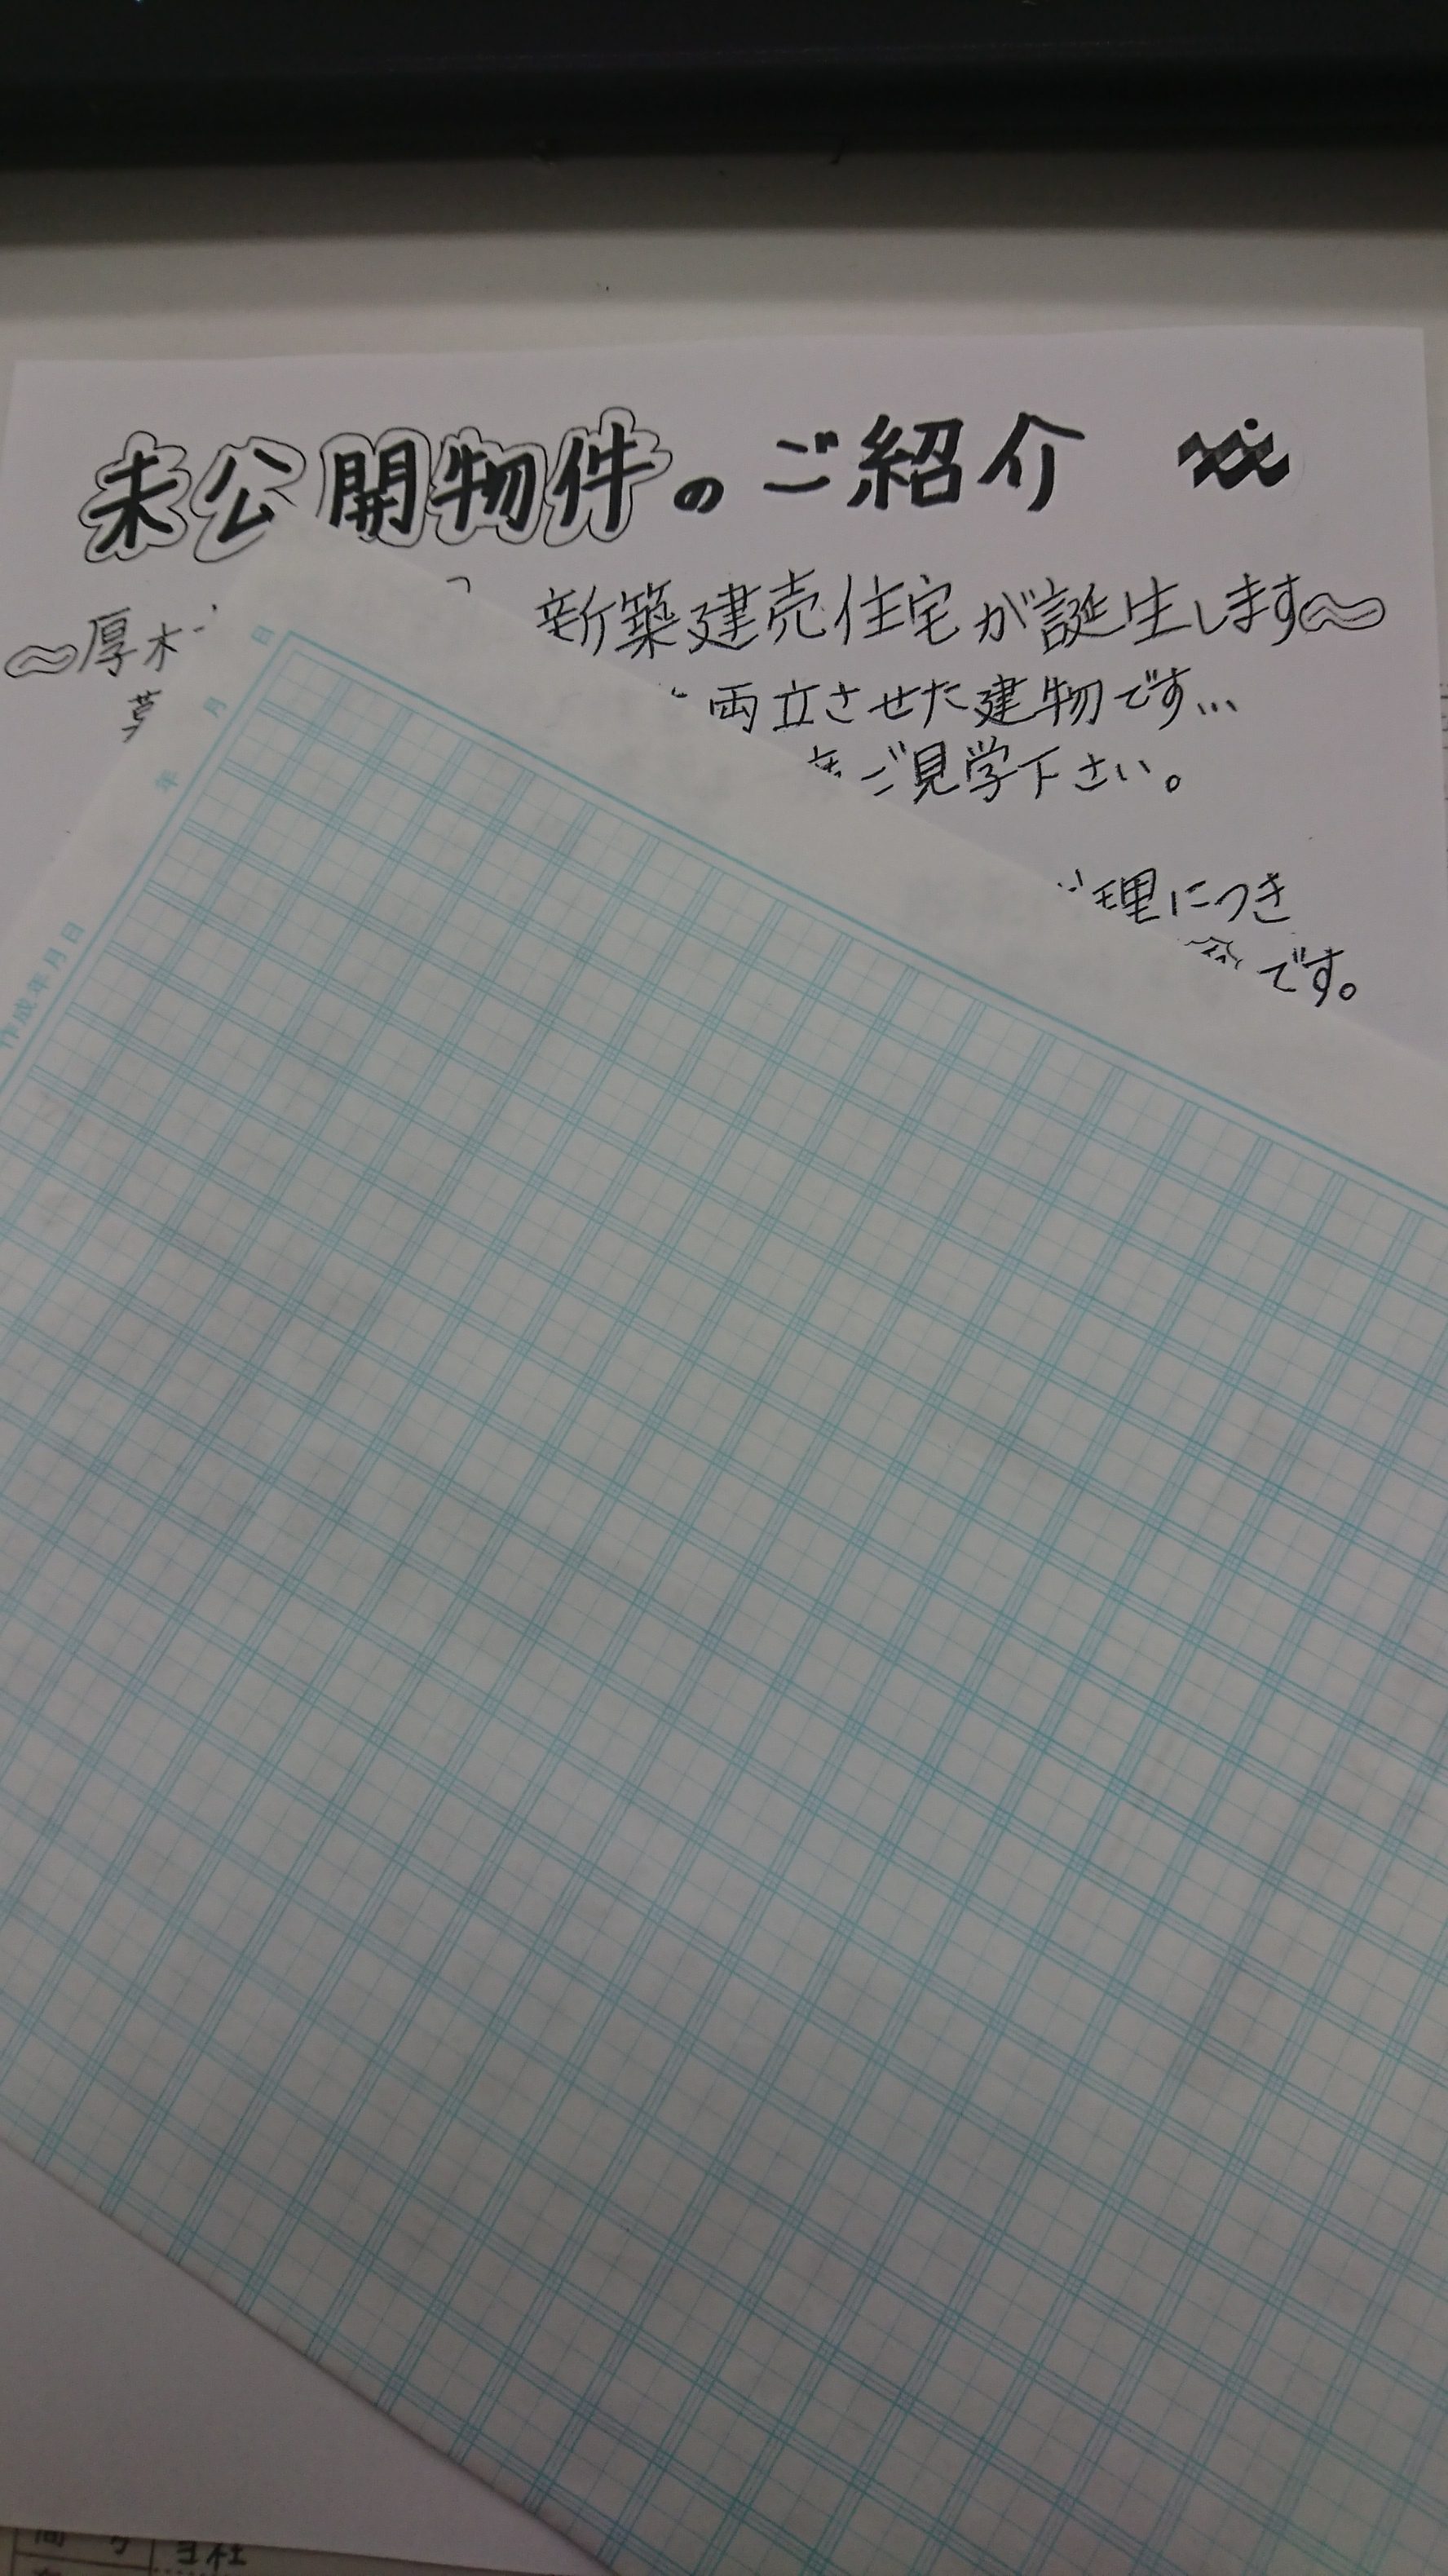 未公開物件のご紹介
〜厚木 新築建売住宅が誕生します〜
両立させた建物です…
ご見学下さい。
理につき
です。
日
月
年
作成年月日
当社